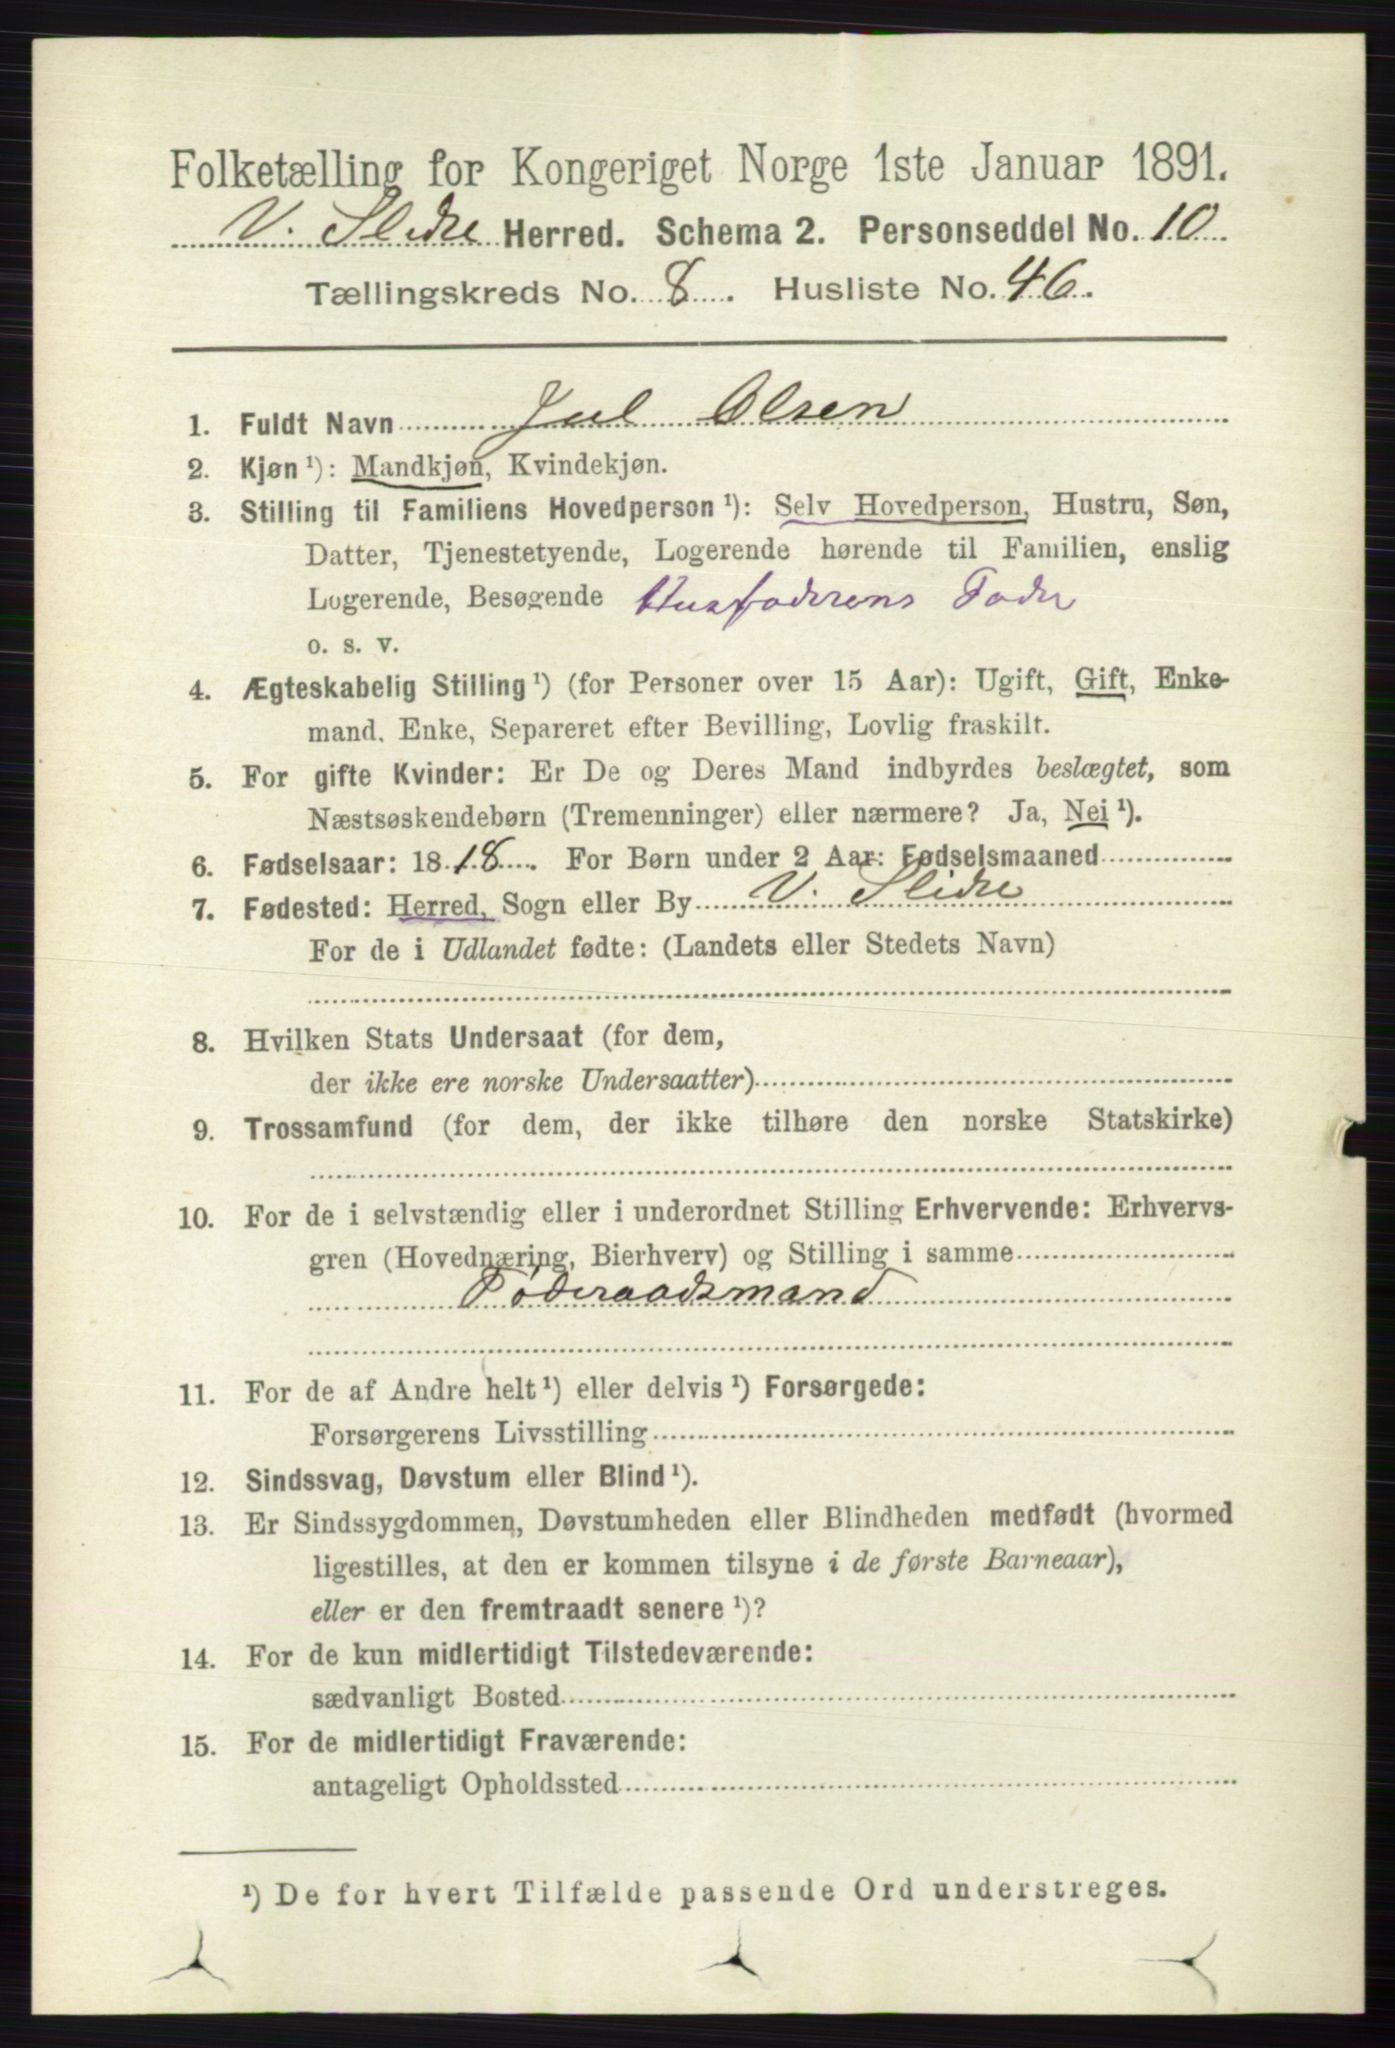 Folketælling for Kongeriget Norge 1ste Januar 1891.
V. Slidre Herred. Schema 2. Personseddel No. 10
Tællingskreds No. 8. Husliste No. 46.
1. Fuldt Navn Jul Olsen
2. Kjøn ¹): Mandkjøn, Kvindekjøn.
3. Stilling til Familiens Hovedperson ¹): Selv Hovedperson, Hustru, Søn,
Datter, Tjenestetyende, Logerende hørende til Familien, enslig
Logerende, Besøgende Husfaderens Fader
o. s. v.
4. Ægteskabelig Stilling ¹) (for Personer over 15 Aar): Ugift, Gift, Enke-
mand, Enke, Separeret efter Bevilling, Lovlig fraskilt.
5. For gifte Kvinder: Er De og Deres Mand indbyrdes beslægtet, som
Næstsøskendebørn (Tremenninger) eller nærmere? Ja, Nei ¹).
6. Fødselsaar: 1818. For Børn under 2 Aar: Fødselsmaaned
7. Fødested: Herred, Sogn eller By V. Slidre
For de i Udlandet fødte: (Landets eller Stedets Navn)
8. Hvilken Stats Undersaat (for dem,
der ikke ere norske Undersaatter)
9. Trossamfund (for dem, der ikke tilhøre den norske Statskirke)
10. For de i selvstændig eller i underordnet Stilling Erhvervende: Erhvervs-
gren (Hovednæring, Bierhverv) og Stilling i samme
Føderaadsmand
11. For de af Andre helt ¹) eller delvis ¹) Forsørgede:
Forsørgerens Livsstilling
12. Sindssvag, Døvstum eller Blind ¹).
13. Er Sindssygdommen, Døvstumheden eller Blindheden medfødt (hvormed
ligestilles, at den er kommen tilsyne i de første Barneaar),
eller er den fremtraadt senere ¹)?
14. For de kun midlertidigt Tilstedeværende:
sædvanligt Bosted
15. For de midlertidigt Fraværende:
antageligt Opholdssted
¹) De for hvert Tilfælde passende Ord understreges.